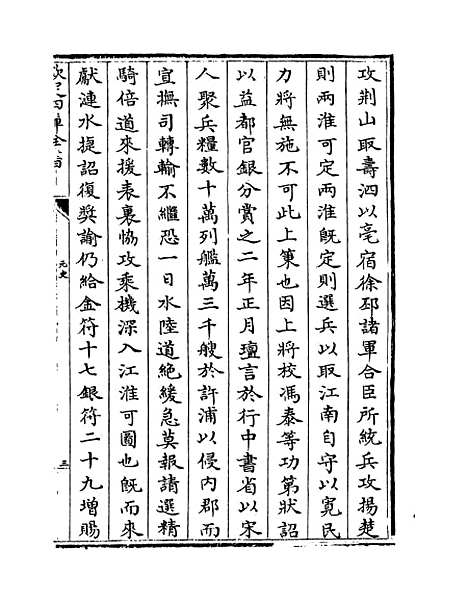 攻荆山取壽泗以亳宿徐邳諸軍合臣所統兵攻揚楚
則兩淮可定兩淮既定則選兵以取江南自守以寛民
力將無施不可此上策也因上將校馮泰等功第狀詔
以益都官銀分賞之二年正月璮言於行中書省以宋
人聚兵糧數十萬列艦萬三千艘於許浦以侵内郡而
宣撫司轉輸不繼恐一日水陸道絶緩急莫報請選精
騎倍道來援表裏恊攻乘機深入江淮可圖也既而來
獻漣水捷詔復奬諭仍給金符十七銀符二十九增賜
元史
三